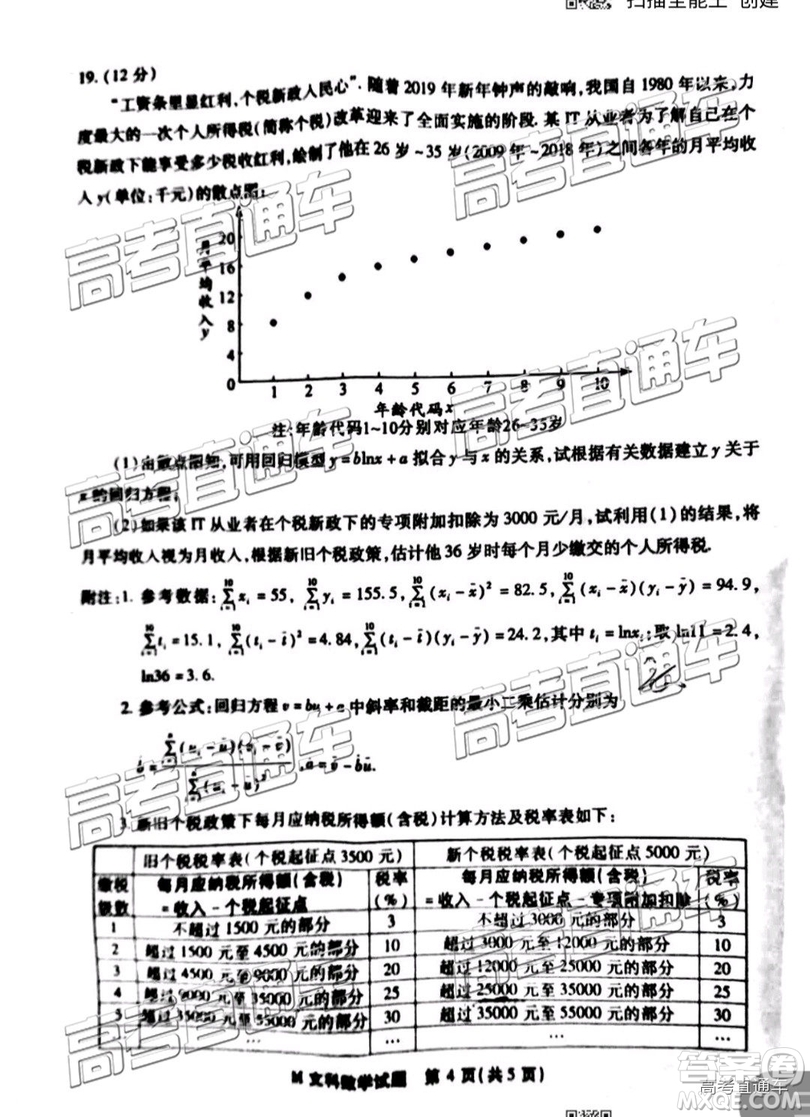 扫描全能王 创建
19.(12分)
“工资条里显红利,个税新政人民心”.随着2019年新年钟声的敲响,我国自1980年以来,力
度最大的一次个人所得税(简称个税)改革迎来了全面实施的阶段.某IT从业者为了解自己在个
税新政下能享受多少税收红利,绘制了他在26岁~35岁(2009年~2018年)之间各年的月平均收
入y(单位:千元)的散点图:
月平均收入y
20
16
12
8
4
0
1 2 3 4 5 6 7 8 9 10
年龄代码x
注:年龄代码1~10分别对应年龄26~35岁
(1)由散点图知,可用回归模型y=blnx+a拟合y与x的关系,试根据有关数据建立y关于
x的回归方程;
(2)如果该IT从业者在个税新政下的专项附加扣除为3000元/月,试利用(1)的结果,将
月平均收入视为月收入,根据新旧个税政策,估计他36岁时每个月少缴交的个人所得税.
附注:1. 参考数据:∑(i=1→10) xᵢ=55, ∑(i=1→10) yᵢ=155.5, ∑(i=1→10) (xᵢ-x̄)²=82.5, ∑(i=1→10) (xᵢ-x̄)(yᵢ-ȳ)=94.9,
∑(i=1→10) tᵢ=15.1, ∑(i=1→10) (tᵢ-t̄)²=4.84, ∑(i=1→10) (tᵢ-t̄)(yᵢ-ȳ)=24.2,其中tᵢ=lnxᵢ;取ln11=2.4,
ln36=3.6.
2. 参考公式:回归方程v=bu+a中斜率和截距的最小二乘估计分别为
b̂=∑(i=1→n) (uᵢ-ū)(vᵢ-v̄) / ∑(i=1→n) (uᵢ-ū)², â=v̄-b̂ū.
3. 新旧个税政策下每月应纳税所得额(含税)计算方法及税率表如下:
旧个税税率表(个税起征点3500元) 新个税税率表(个税起征点5000元)
缴税级数 每月应纳税所得额(含税)=收入-个税起征点 税率(%) 每月应纳税所得额(含税)=收入-个税起征点-专项附加扣除 税率(%)
1 不超过1500元的部分 3 不超过3000元的部分 3
2 超过1500元至4500元的部分 10 超过3000元至12000元的部分 10
3 超过4500元至9000元的部分 20 超过12000元至25000元的部分 20
4 超过9000元至35000元的部分 25 超过25000元至35000元的部分 25
5 超过35000元至55000元的部分 30 超过35000元至55000元的部分 30
… … … … …
M 文科数学试题 第4页(共5页)
高考直通车
高考直通车
高考直通车
高考直通车
高考直通车
高考直通车
答案圈
高考直通车
MXQE.COM